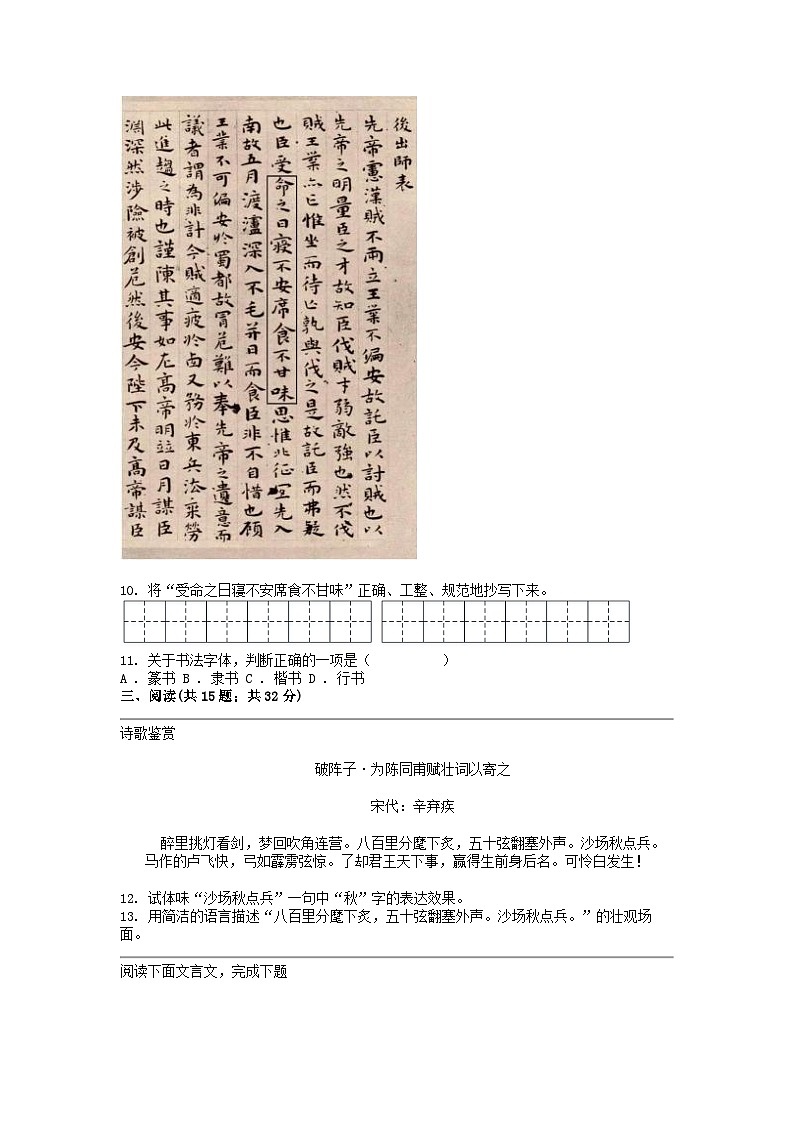 後出師表
先帝慮漢賊不兩立王業不偏安故託臣以討賊也以
先帝之明量臣之才故知臣伐賊才弱敵強也然不伐
賊王業亦亡惟坐而待亡孰與伐之是故託臣而弗疑
也臣受命之日寢不安席食不甘味思惟北征宜先入
南故五月渡瀘深入不毛并日而食臣非不自惜也顧
王業不可偏安於蜀都故冒危難以奉先帝之遺意而
議者謂為非計今賊適疲於西又務於東兵法乘勞
此進趨之時也謹陳其事如左高帝明並日月謀臣
淵深然涉險被創危然後安今陛下未及高帝謀臣
10. 将“受命之日寝不安席食不甘味”正确、工整、规范地抄写下来。
11. 关于书法字体，判断正确的一项是（ ）
A . 篆书 B . 隶书 C . 楷书 D . 行书
三、阅读(共15题；共32分)
诗歌鉴赏
破阵子·为陈同甫赋壮词以寄之
宋代：辛弃疾
醉里挑灯看剑，梦回吹角连营。八百里分麾下炙，五十弦翻塞外声。沙场秋点兵。
马作的卢飞快，弓如霹雳弦惊。了却君王天下事，赢得生前身后名。可怜白发生！
12. 试体味“沙场秋点兵”一句中“秋”字的表达效果。
13. 用简洁的语言描述“八百里分麾下炙，五十弦翻塞外声。沙场秋点兵。”的壮观场
面。
阅读下面文言文，完成下题